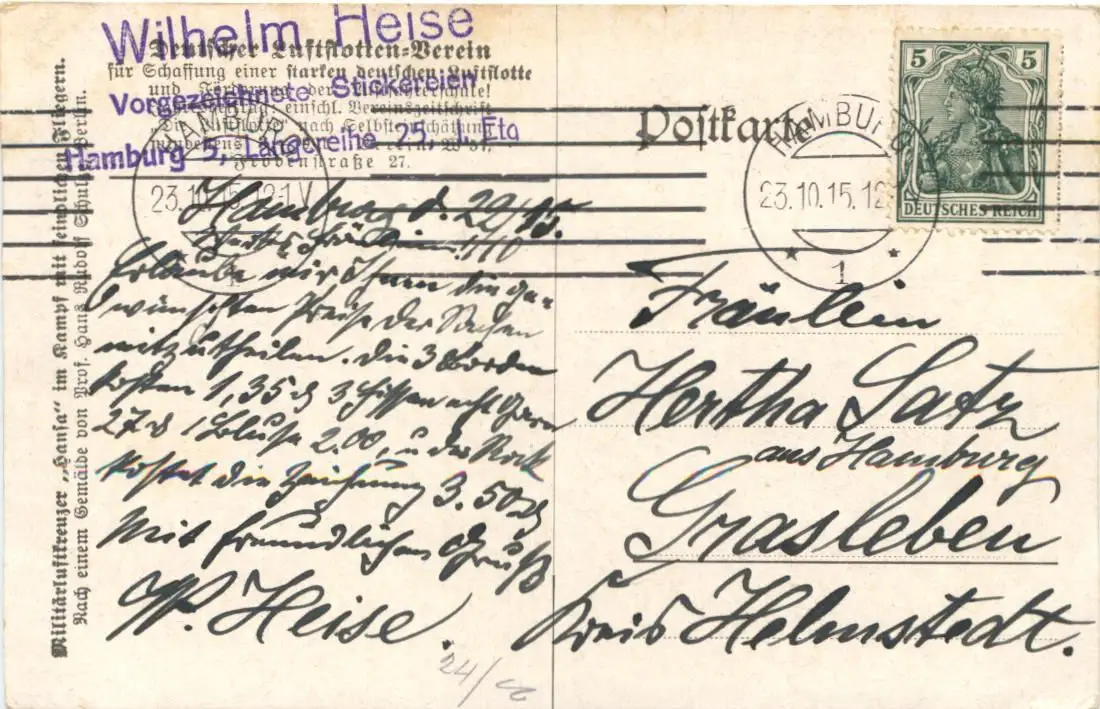 Wilhelm Heise
Deutscher Luftflotten-Verein
für Schaffung einer starken deutschen Luftflotte
und Förderung der
Vorgezeichnete Stickereien
einschl. Vereinszeitschrift
„Die Luftflotte“ nach Selbsteinschätzung
mindestens
Hamburg 5, Langereihe 25, Etg
Frobenstraße 27.
Militärluftkreuzer „Hansa“ im Kampf mit feindlichen Fliegern.
Nach einem Gemälde von Prof. Hans Rudolf Schulze, Berlin.
Postkarte
HAMBURG
23.10.15.12-1V
1
HAMBURG
23.10.15.12
1
5 5
DEUTSCHES REICH
Hamburg d. 22/10 15.
Wertes Fräulein!!!
Erlaube mir Ihnen die ge-
wünschten Preise der Sachen
mitzutheilen. Die 3 Borden
kosten 1,35 M 3 Kissen
27 1 Bluse 2.00, u der Rock
kostet die Zeichnung 3.50 M
Mit freundlichen Gruß
W. Heise.
Fräulein
Hertha Satz
aus Hamburg
Grasleben
Kreis Helmstedt.
24/